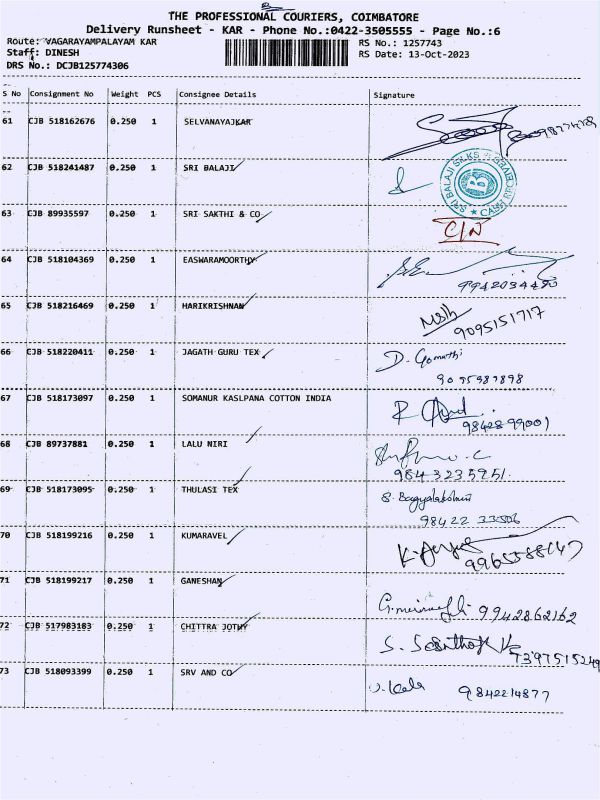 B
THE PROFESSIONAL COURIERS, COIMBATORE
Delivery Runsheet - KAR - Phone No.:0422-3505555 - Page No.:6
Route: VAGARAYAMPALAYAM KAR
RS No.: 1257743
Staff: DINESH
RS Date: 13-Oct-2023
DRS No.: DCJB125774306
S No Consignment No Weight PCS Consignee Details Signature
61 CJB 518162676 0.250 1 SELVANAYAJKAR
62 CJB 518241487 0.250 1 SRI BALAJI
SRI BALAJI SILKS
63 CJB 89935597 0.250 1 SRI SAKTHI & CO C/N
64 CJB 518104369 0.250 1 EASWARAMOORTHY
9942034490
65 CJB 518216469 0.250 1 HARIKRISHNAN
9095151717
66 CJB 518220411 0.250 1 JAGATH GURU TEX D. Gomathi
9095987898
67 CJB 518173097 0.250 1 SOMANUR KASLPANA COTTON INDIA
9842899001
68 CJB 89737881 0.250 1 LALU NIRI
9843235951
69 CJB 518173095 0.250 1 THULASI TEX S. Bagyalakshmi
98422 33506
70 CJB 518199216 0.250 1 KUMARAVEL
9965588147
71 CJB 518199217 0.250 1 GANESHAN
9942862162
72 CJB 517983183 0.250 1 CHITTRA JOTHY S. Santhosh K
7397515249
73 CJB 518093399 0.250 1 SRV AND CO Kala 9842214877